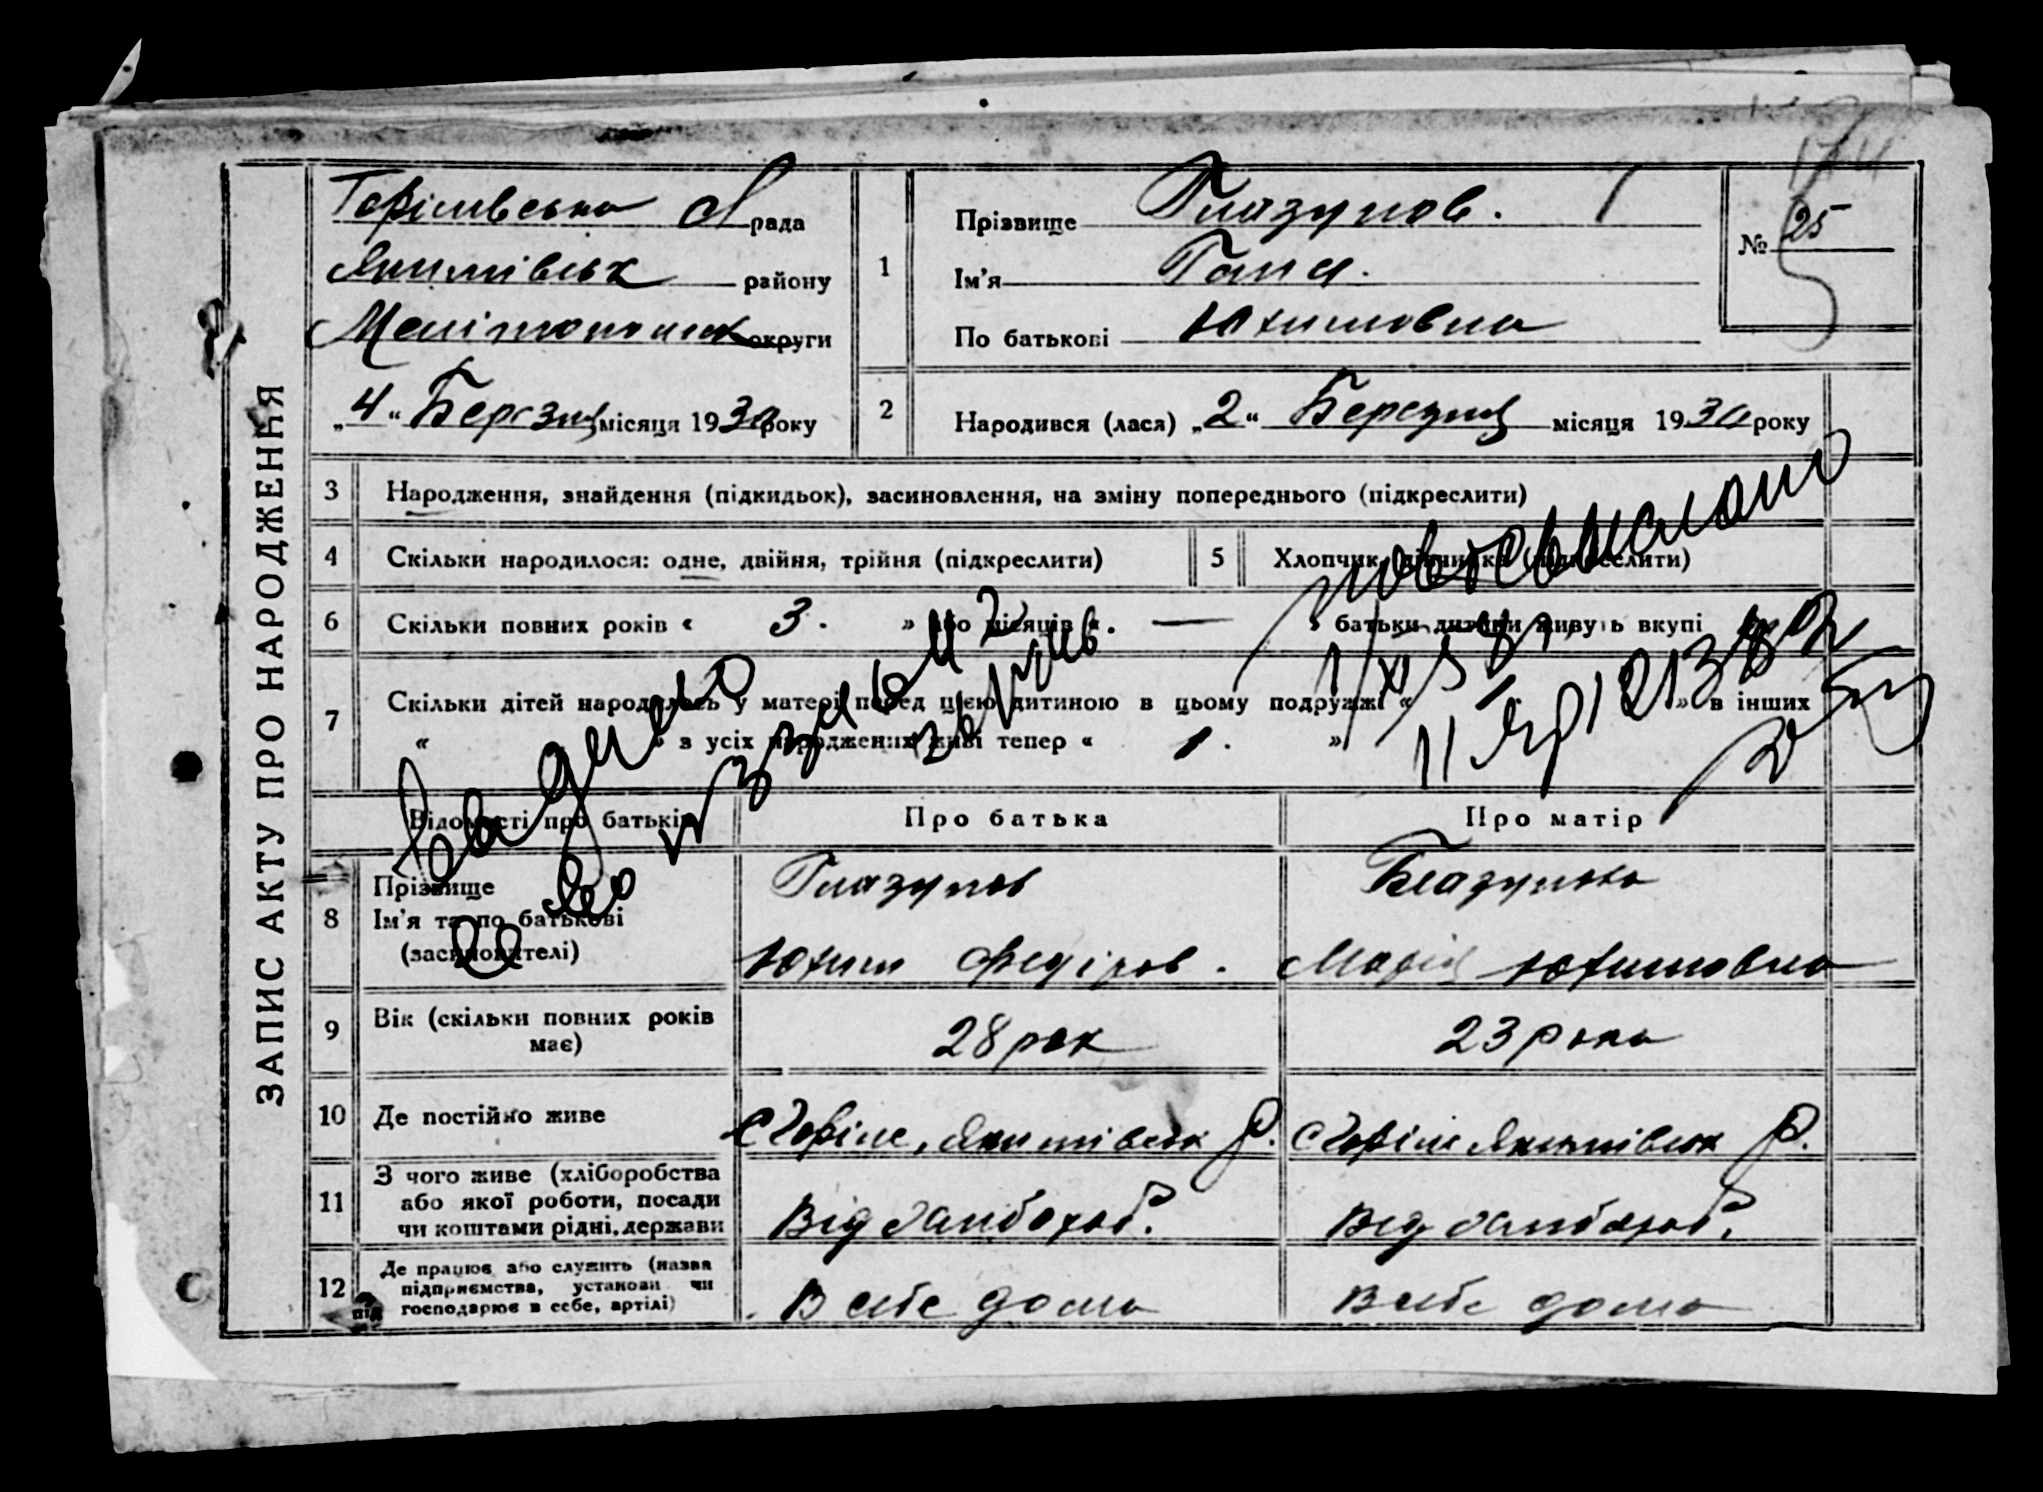 ЗАПИС АКТУ ПРО НАРОДЖЕННЯ
Горімвська рада
Якимівськ району
Мелітопольськ округи
„4“ Березня місяця 1930 року
1
Прізвище Глазунов.
Ім'я Ганя.
По батькові Юхимовна
№ 25
2
Народився (лася) „2“ Березня місяця 1930 року
3 Народження, знайдення (підкидьок), засиновлення, на зміну попереднього (підкреслити)
4 Скільки народилося: одне, двійня, трійня (підкреслити)
5 Хлопчик, дівчинка (підкреслити)
6 Скільки повних років « 3. » або місяців « — » батьки дитини живуть вкупі
7 Скільки дітей народилось у матері перед цією дитиною в цьому подружжі « » в інших
« » з усіх народжених живі тепер « 1. »
Відомості про батьків
Про батька
Про матір
8 Прізвище
Ім'я та по батькові
(засиновителі)
Глазунов
Юхим Федіров.
Глазунова
Марія Юхимовна
9 Вік (скільки повних років має)
28 рок
23 рока
10 Де постійно живе
с Горіле, Якимівськ р.
с Горіле Якимівськ р.
11 З чого живе (хліборобства
або якої роботи, посади
чи коштами рідні, держави
Від
Від
12 Де працює або служить (назва
підприємства, установи чи
господарює в себе, артілі)
В себе дома
В себе дома